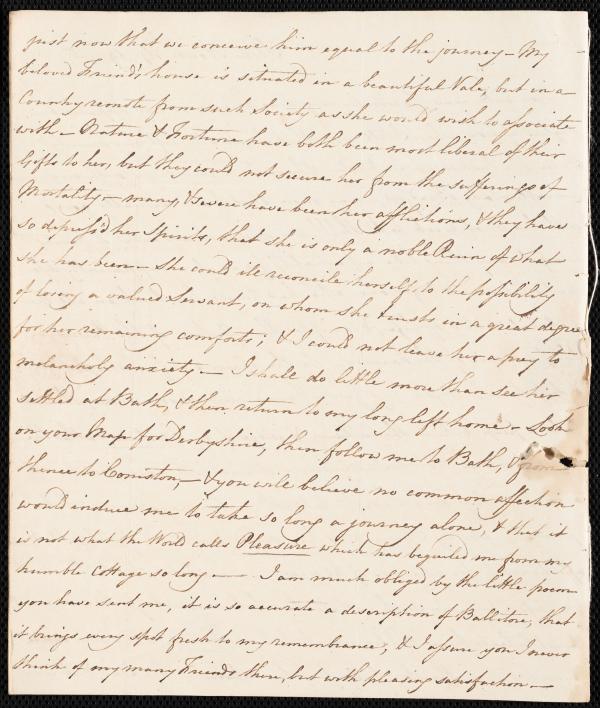 just now that we conceive him equal to the journey – My
beloved Friend's house is situated in a beautiful Vale, but in a
Country remote from such Society as she would wish to associate
with – Nature & Fortune have both been most liberal of their
Gifts to her, but they could not secure her from the sufferings of
Mortality – many, & severe have been her afflictions, & they have
so depress'd her Spirits, that she is only a noble Ruin of what
she has been – She could ill reconcile herself to the possibility
of losing a valued Servant, on whom she trusts in a great degree
for her remaining comforts; & I could not leave her a prey to
melancholy anxiety – I shall do little more than see her
settled at Bath, & then return to my long left home – Look
on your Map for Derbyshire, then follow me to Bath, & from
thence to Coniston, – & you will believe no common affection
would induce me to take so long a journey alone, & that it
is not what the World calls Pleasure which has beguiled me from my
humble Cottage so long – I am much obliged by the little poem
you have sent me, it is so accurate a description of Ballitore, that
it brings every spot fresh to my remembrance, & I assure you I never
think of my many Friends there, but with pleasing satisfaction –